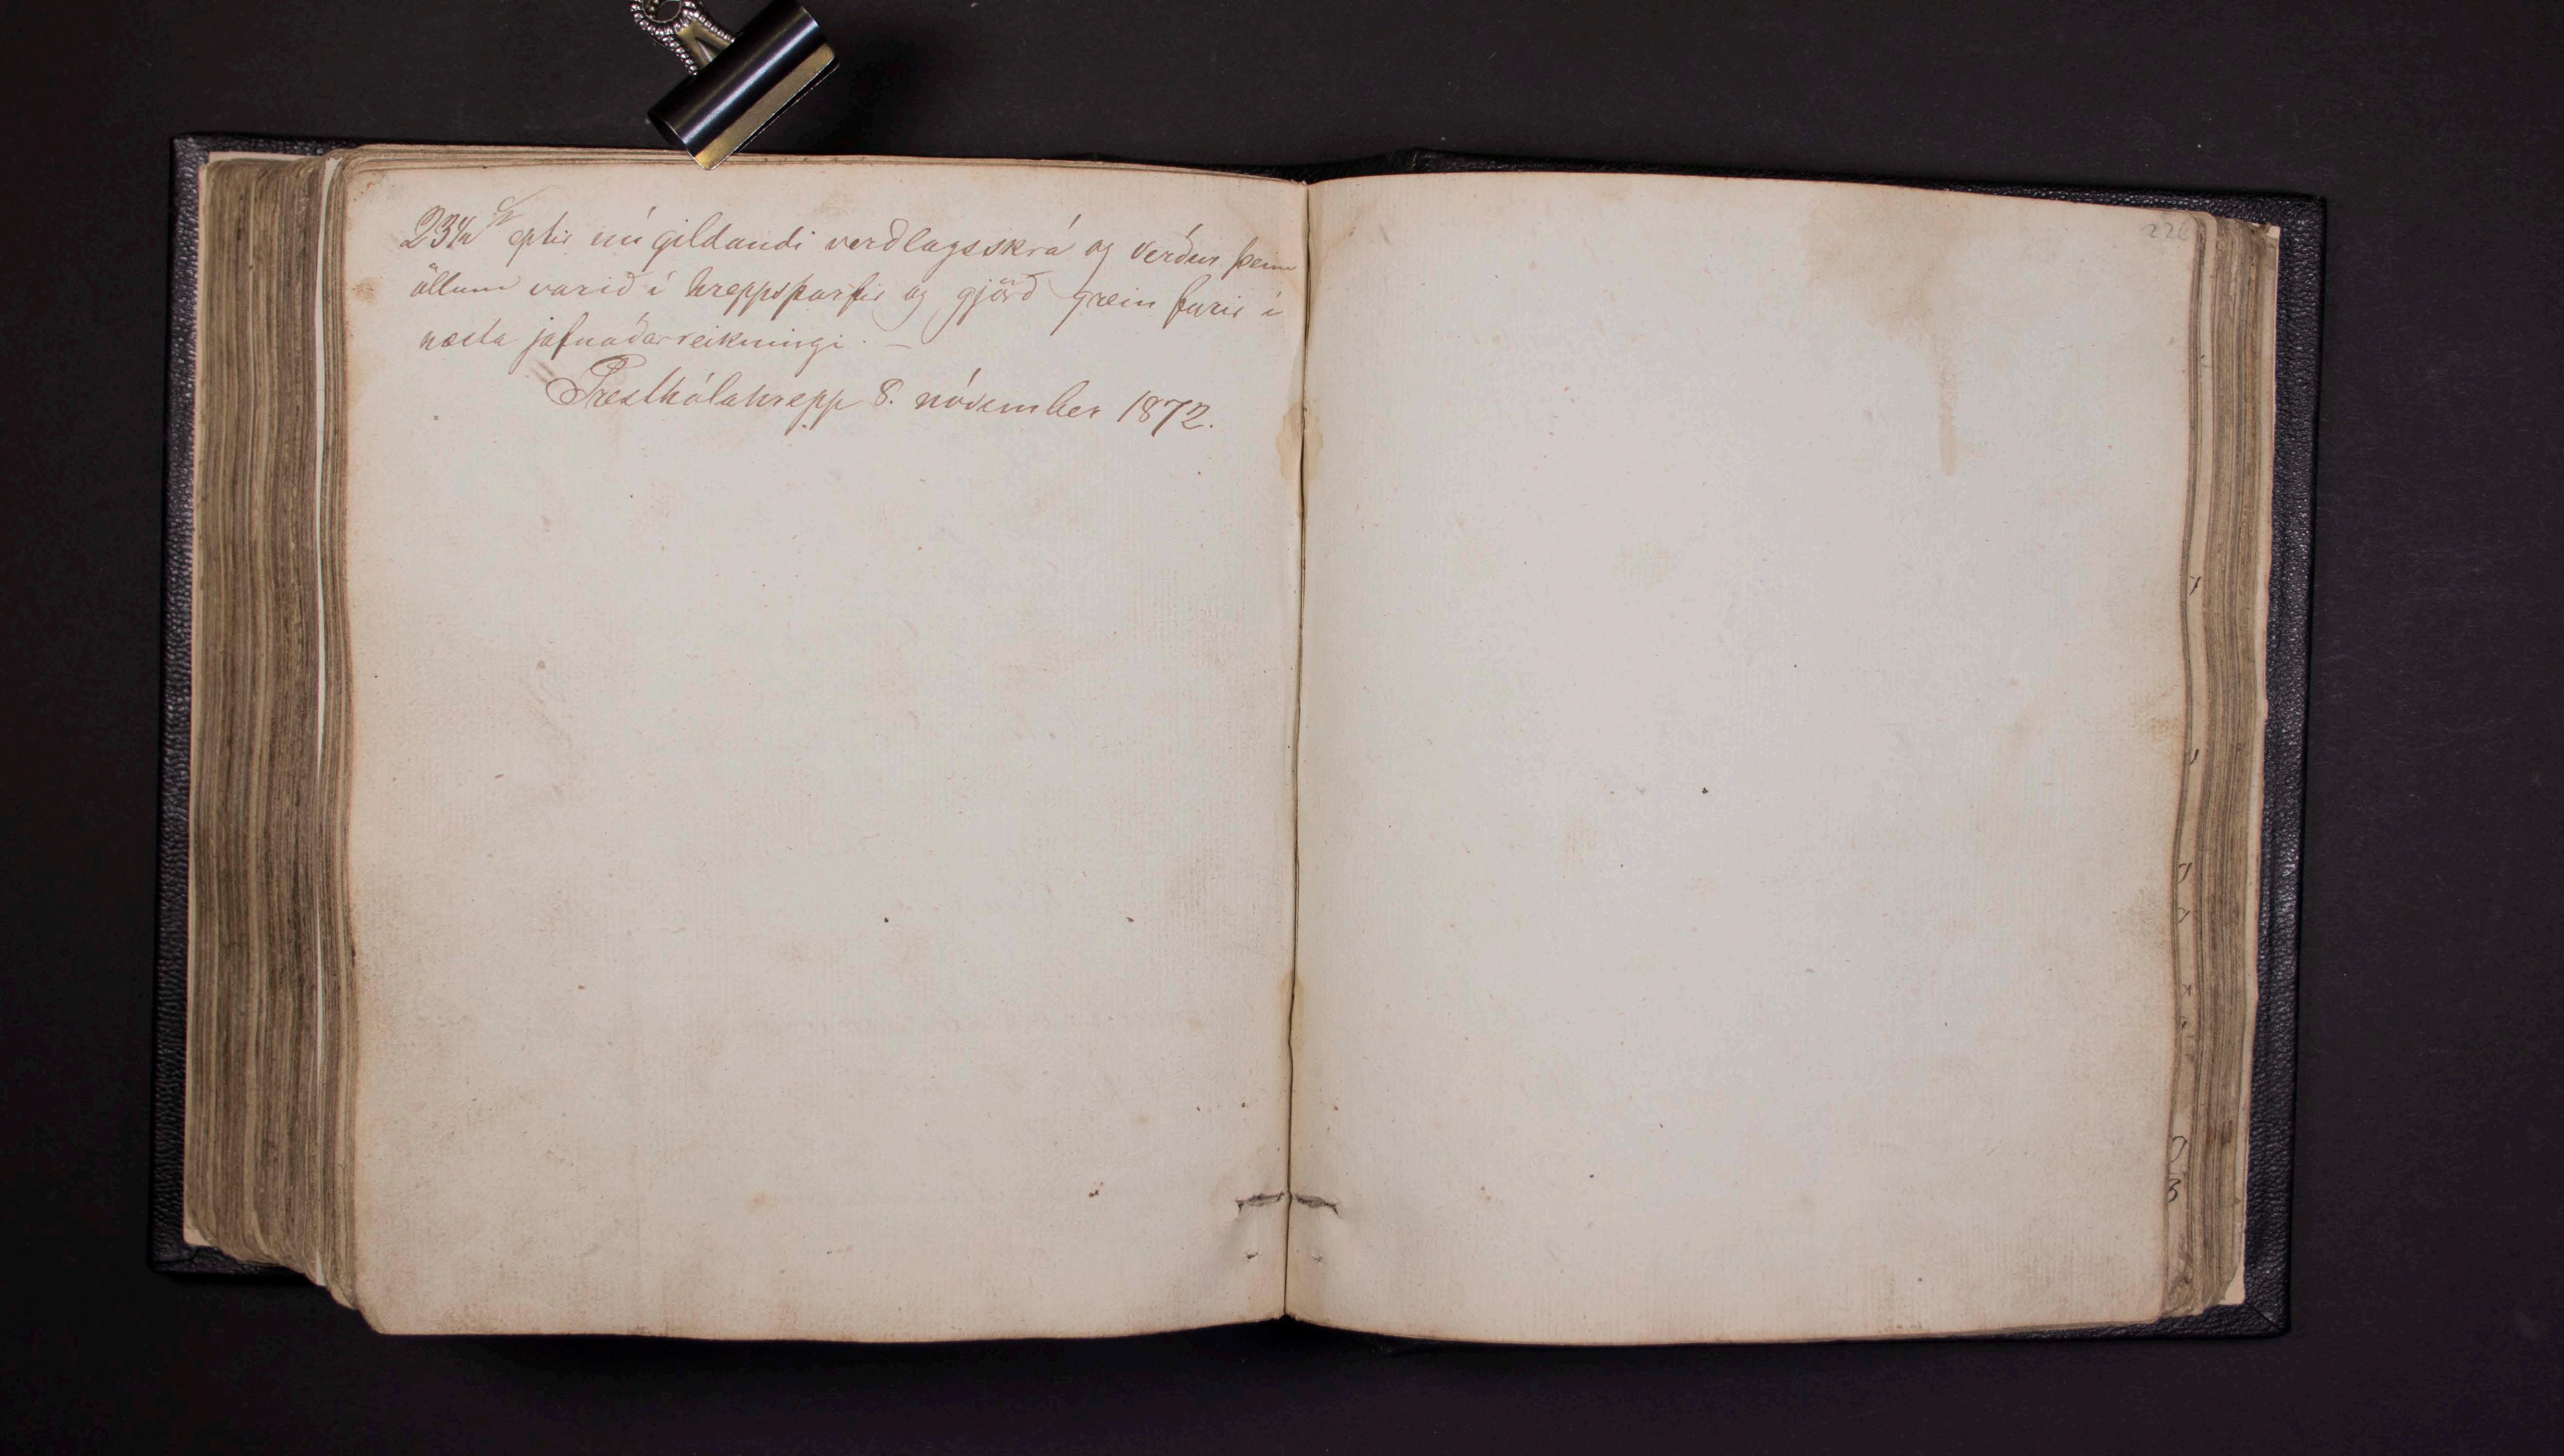 23½ eptir nú gildandi verðlagsskrá og verður þeim
öllum varið í hreppsþarfir og gjörð grein fyrir í
næsta jafnaðarreikningi. –
Presthólahrepp 8. nóvember 1872.
226